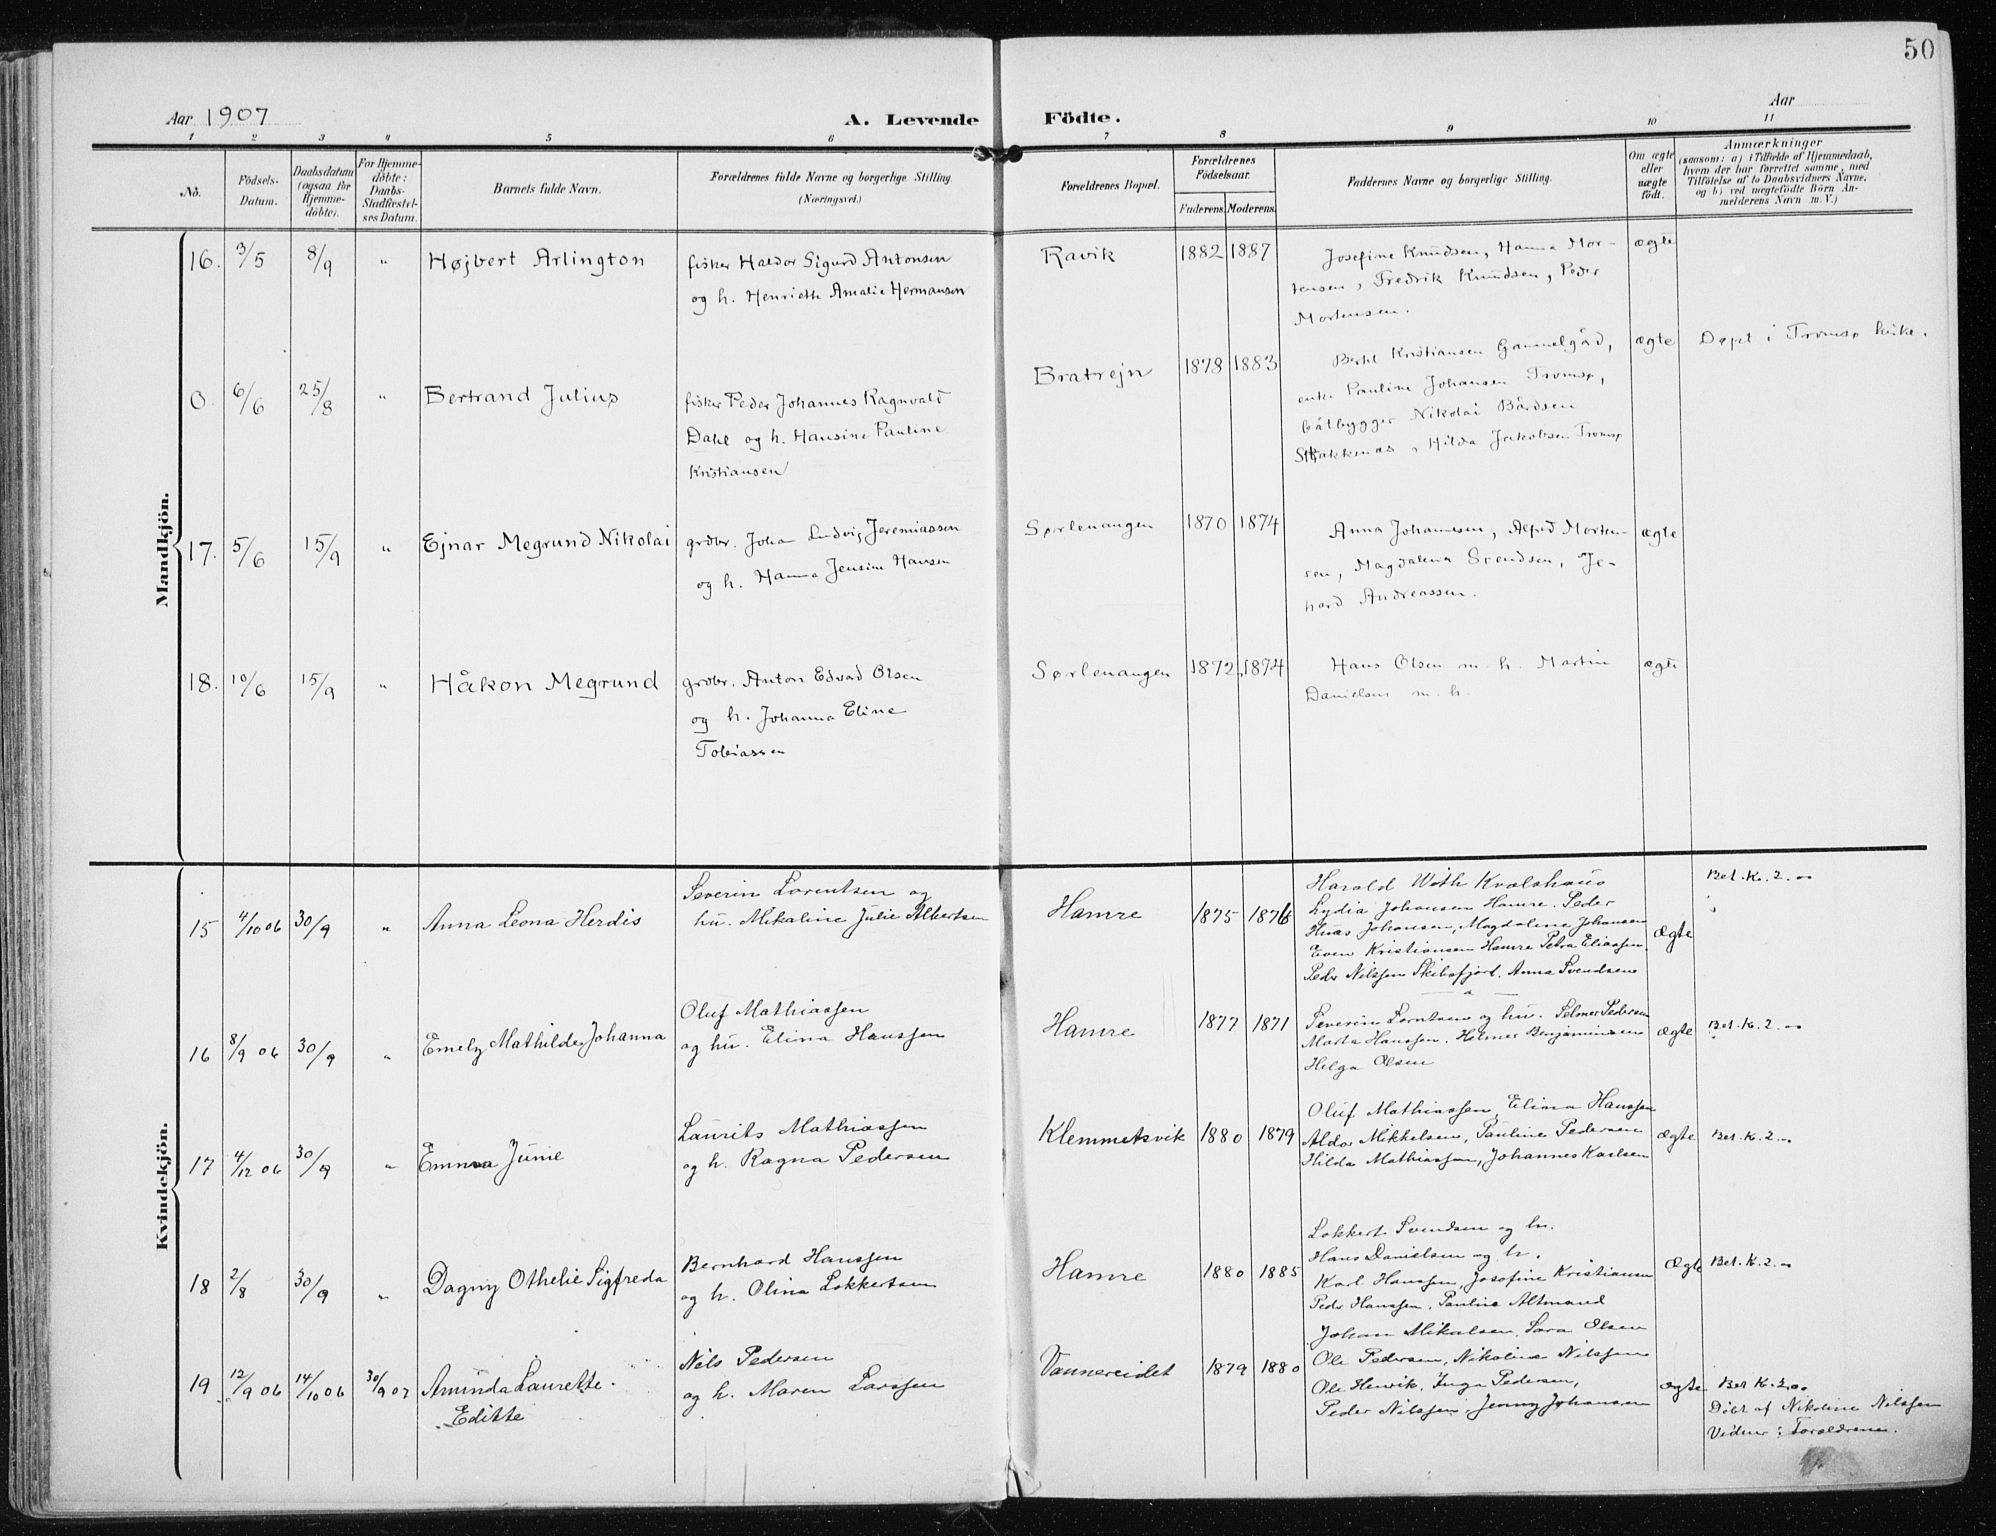 50
Aar 1907
A. Levende
Födte.
Aar
1 2 3 4 5 6 7 8 9 10 11
No.
Födsels-
Datum.
Daabsdatum
(ogsaa for
Hjemme-
döbte).
For Hjemme-
döbte:
Daabs-
Stadfæstel-
ses Datum.
Barnets fulde Navn.
Forældrenes fulde Navne og borgerlige Stilling
(Næringsvei.)
Forældrenes Bopæl.
Forældrenes
Födselsaar.
Faderens.
Moderens.
Faddernes Navne og borgerlige Stilling.
Om ægte
eller
uægte
födt.
Anmærkninger
(saasom: a) i Tilfælde af Hjemmedaab,
hvem der har forrettet samme, med
Tilföielse af to Daabsvidners Navne,
og b) ved uegtefödte Börn An-
melderens Navn m. V.)
Mandkjön.
16. 3/5 8/9 " Højbert Arlington
fisker Haldor Sigurd Antonsen
og h. Henriette Amalie Hermansen
Ravik 1882 1887
Josefine Knudsen, Hanna Mor-
tensen, Fredrik Knudsen, Peder
Mortensen.
ægte
0. 6/6 25/8 " Bertrand Julius
fisker Peder Johannes Ragnvald
Dahl og h. Hansine Pauline
Kristiansen
Bratrejn 1878 1883
Bertel Kristiansen Gammelgård,
enke Pauline Johansen Tromsø,
båtbygger Nikolai Bårdsen
Stakkenæs, Hilda Jakobsen Tromsø
ægte
Døpt i Tromsø kirke.
17. 5/6 15/9 " Ejnar Megrund Nikolai
grdbr. Johan Ludvig Jeremiassen
og h. Hanna Jensine Hansen
Sørlenangen 1870 1874
Anna Johannesen, Alfred Morten-
sen, Magdalena Svendsen, Je-
hard Andreassen.
ægte
18. 10/6 15/9 " Håkon Megrund
grdbr. Anton Edvard Olsen
og h. Johanna Eline
Tobiassen
Sørlenangen 1872 1874
Hans Olsen m. h. Martin
Danielsen m. h.
ægte
Kvindekjön.
15 4/10 06 30/9 " Anna Leona Herdis
Severin Lorentsen og
hu. Mikaline Julie Albertsen
Hamre 1875 1876
Harald Woth Kvalshaus
Lydia Johansen Hamre. Peder
Johansen, Magdalene Johansen
Even Kristiansen Hamre Petra Eliassen.
Peder Nilssen Skibsfjord. Anna Svendsen
ægte
Bet. K. 2.00
16 8/9 06 30/9 " Emely Mathilde Johanna
Oluf Mathiassen
og hu. Elina Hanssen
Hamre 1877 1871
Severin Lorntsen og hu. Selmer Pedersen
Marta Hanssen. Helmer Benjaminsen
Helga Olsen
ægte
Bet. K. 2.00
17 4/12 06 30/9 " Emma Junie
Laurits Mathiassen
og h. Ragna Pedersen
Klemmetsvik 1880 1879
Oluf Mathiassen, Elina Hanssen
Aldor Mikkelsen, Pauline Pedersen
Hilda Mathiassen, Johannes Karlsen
ægte
Bet. K. 2.00
18 2/8 30/9 " Dagny Othelie Sigfreda
Bernhard Hanssen
og h. Olina Lokkertsen
Hamre 1880 1885
Lokkert Svendsen og hu.
Hans Danielsen og h.
Karl Hanssen, Josefine Kristiansen
Peder Hanssen, Pauline Altmand
ægte
Bet. K. 2.00
19 12/9 06 14/10 06 30/9 07 Aminda Laurette
Editte
Nils Pedersen
og h. Maren Larssen
Vannereidet 1879 1880
Johan Mikalsen, Sara Olsen
Ole Pedersen, Nikoline Nilssen
Ole Henrik, Inga Pedersen,
Peder Nilssen, Jenny Johansen
ægte
Bet K. 2.00
Döbt af Nikoline Nilssen
Vidner: Foraldrene.